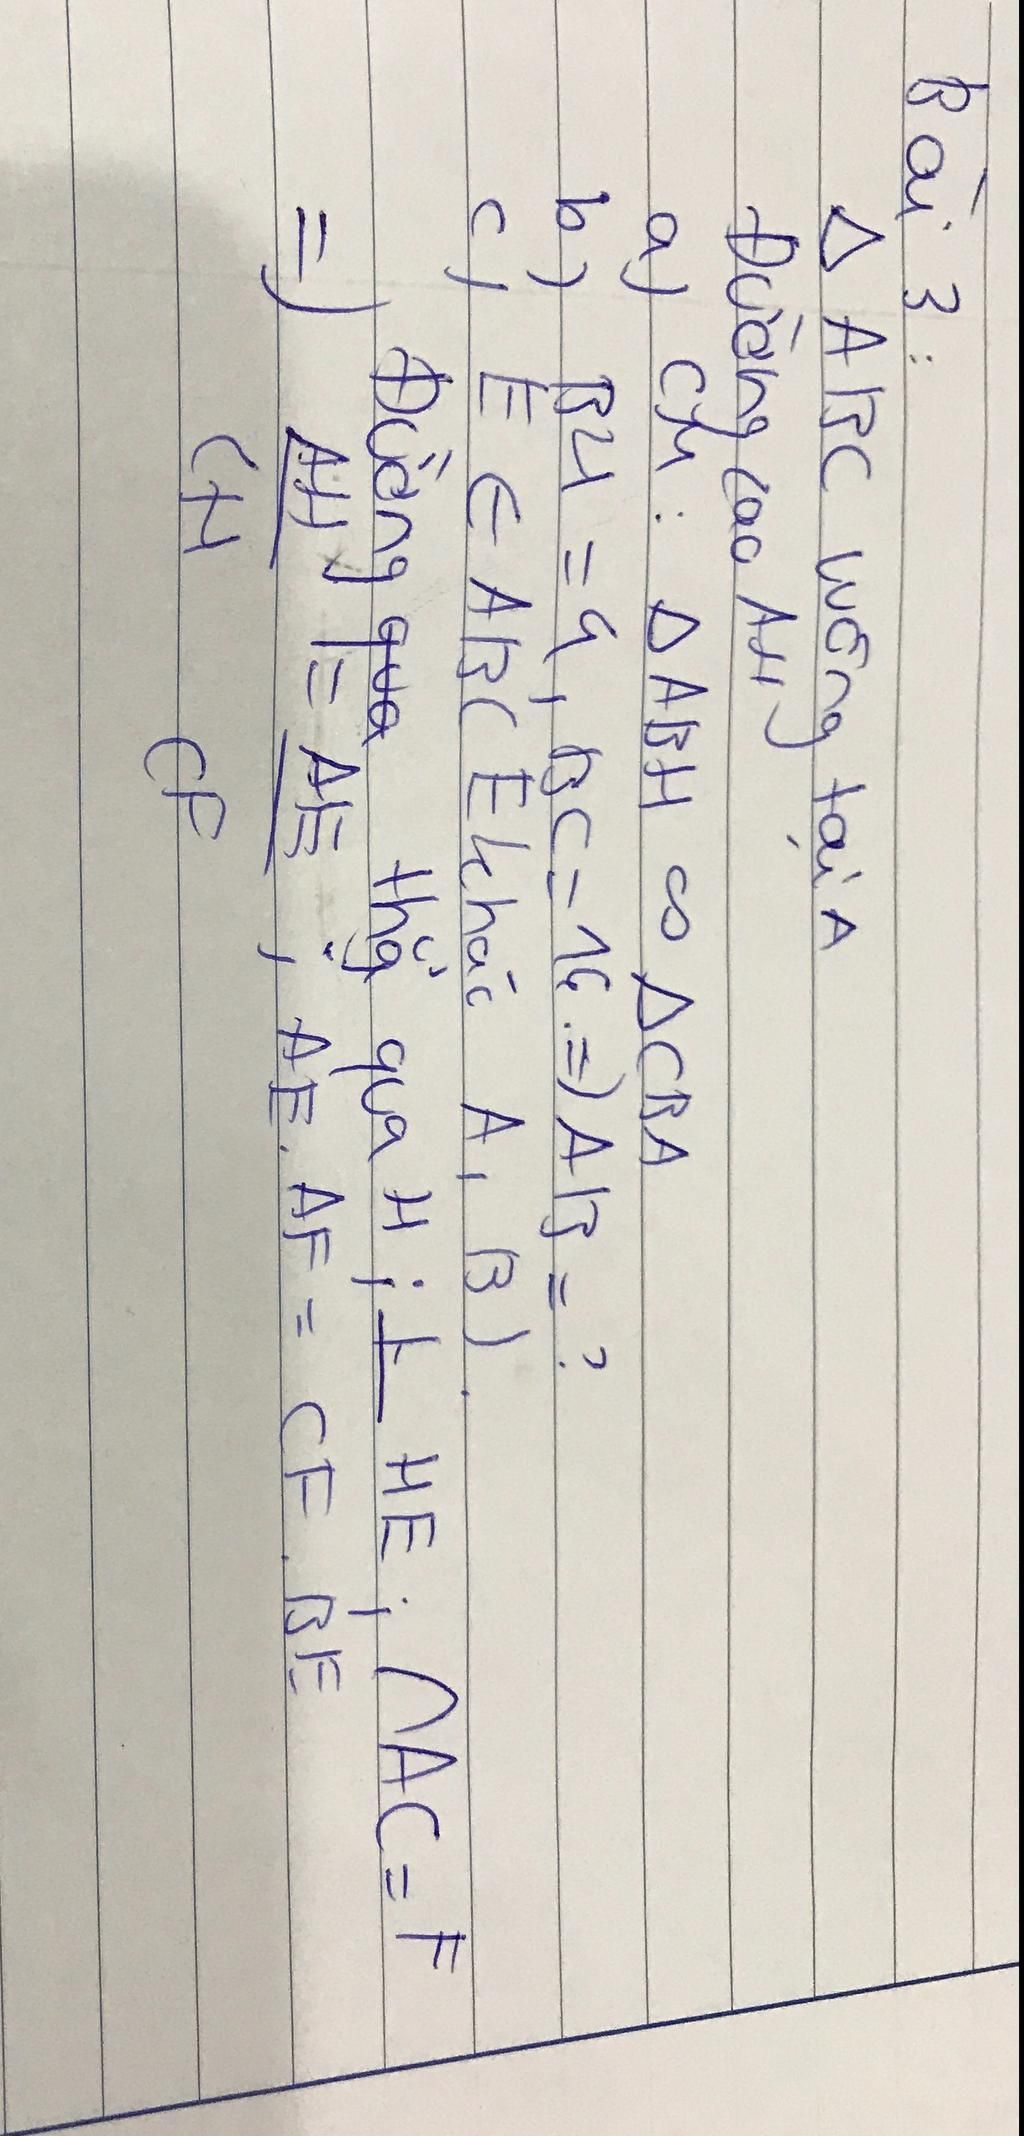 Bài 3:
Δ ABC vuông tại A
Đường cao AH
a) CM: Δ ABH ∽ ΔCBA
b) BH = 4, BC = 16 => AB = ?
c) E ∈ ABC E khác A, B).
Đường qua thẳg qua H; ⊥ HE; ∩AC = F
=) AH = AE ; AE. AF = CF. BE
CH CF